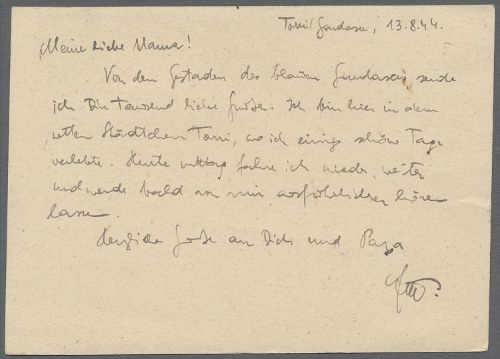 Torri/Gardasee, 13.8.44.
Meine liebe Mama!
Von den Gestaden des blauen Gardasees sende
ich Dir tausend liebe Grüße. Ich bin hier in dem
netten Städtchen Torri, wo ich einige schöne Tage
verlebte. Heute mittag fahre ich wieder weiter
und werde bald von mir ausführlicher hören
lassen.
Herzliche Grüße an Dich und Papa